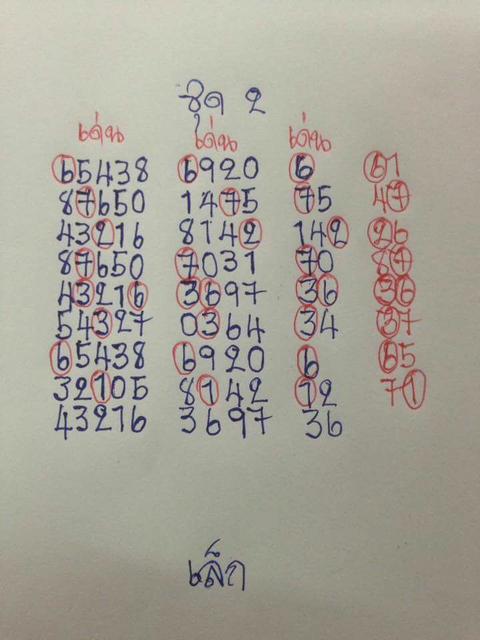 ชุด 2
เด่น เด่น เด่น
65438 6920 6 61
87650 1475 75 47
43216 8142 142 26
87650 7031 70 87
43216 3697 36 36
54327 0364 34 37
65438 6920 6 65
32105 8142 12 71
43216 3697 36
เล็ก